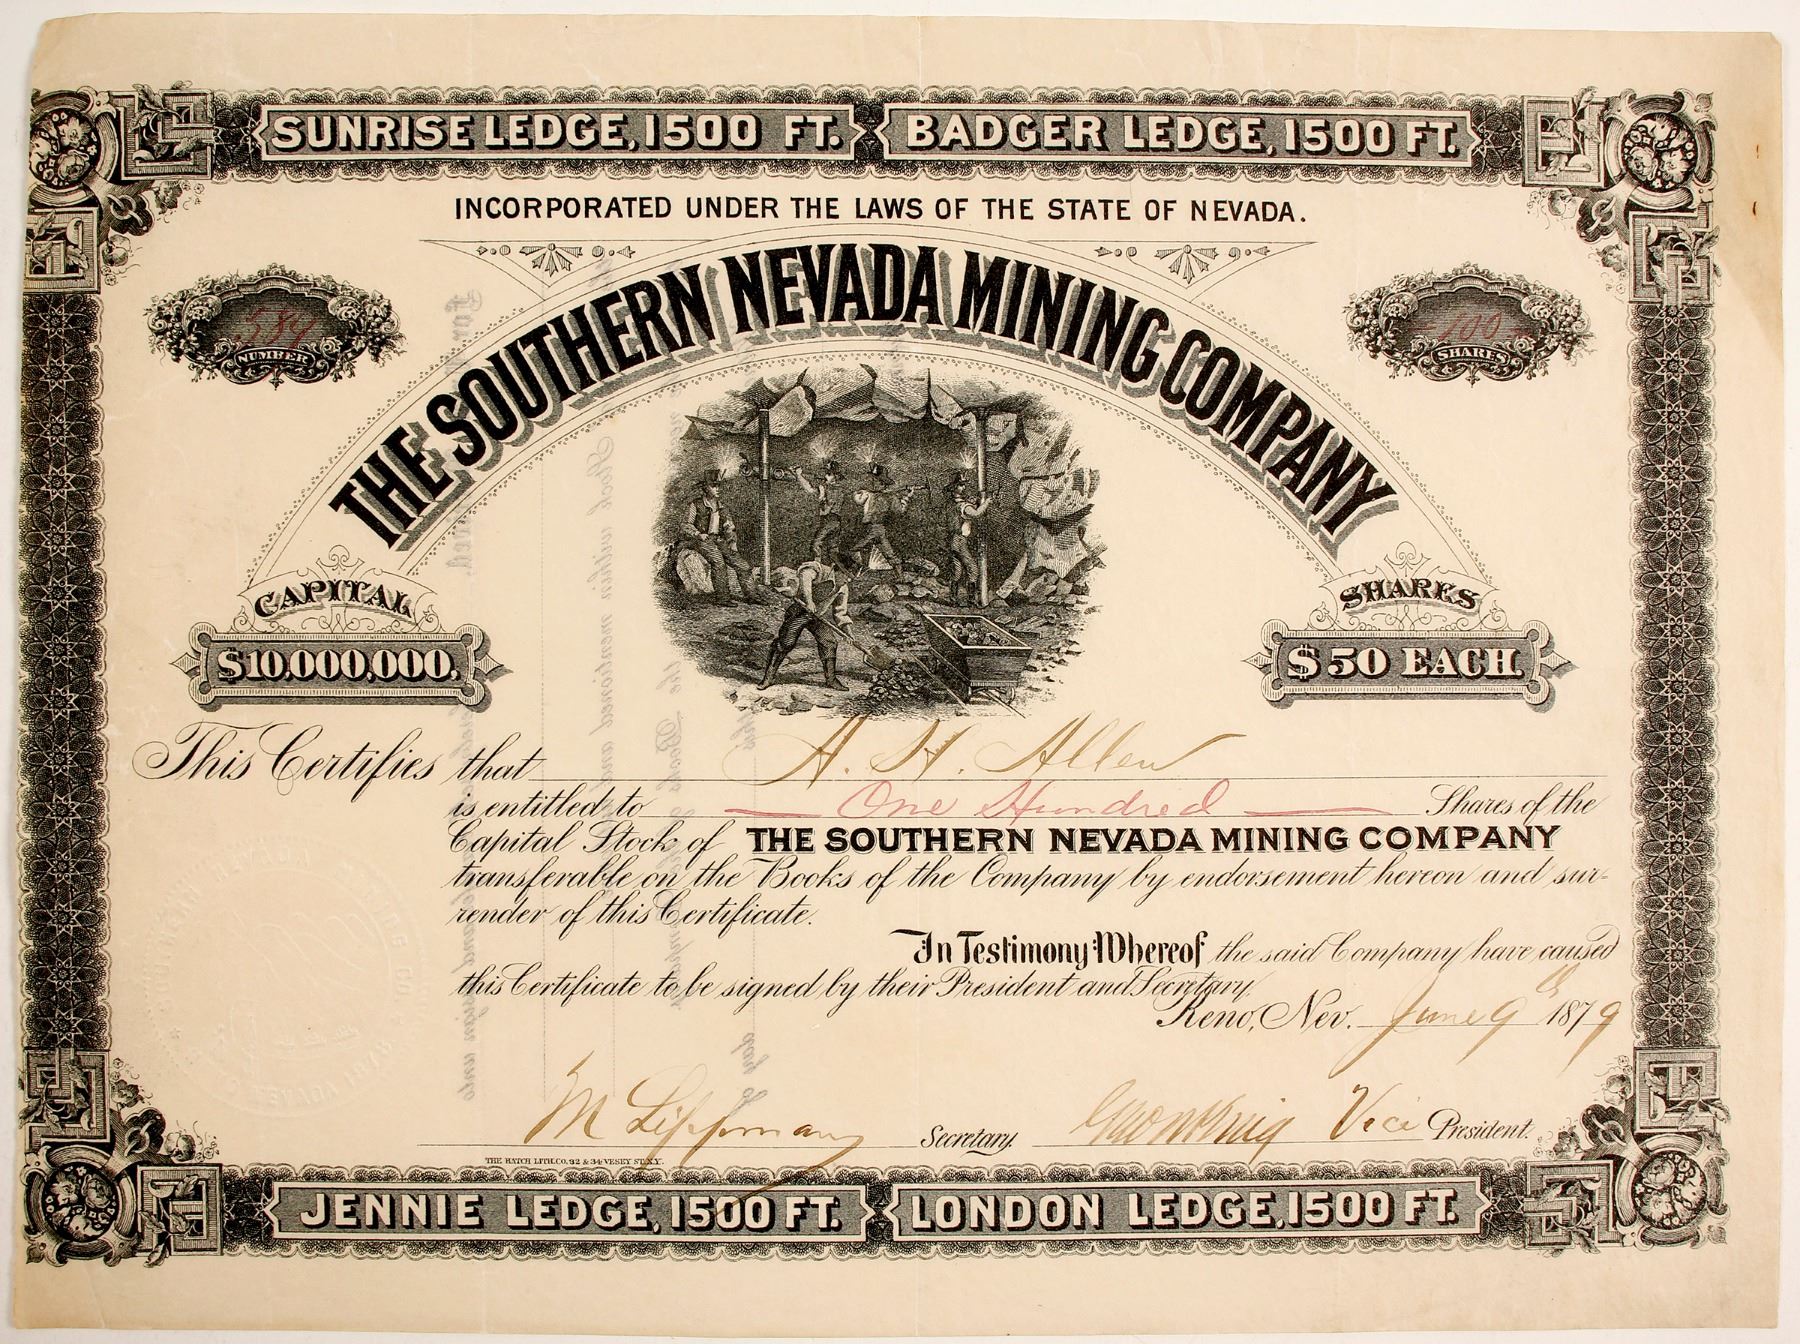 SUNRISE LEDGE, 1500 FT. BADGER LEDGE, 1500 FT.
INCORPORATED UNDER THE LAWS OF THE STATE OF NEVADA.
THE SOUTHERN NEVADA MINING COMPANY
584
NUMBER
-100-
SHARES
CAPITAL
$10,000,000.
SHARES
$50 EACH.
This Certifies that A. H. Allen
is entitled to — One Hundred — Shares of the
Capital Stock of THE SOUTHERN NEVADA MINING COMPANY
transferable on the Books of the Company by endorsement hereon and sur-
render of this Certificate.
In Testimony Whereof the said Company have caused
this Certificate to be signed by their President and Secretary.
Reno, Nev. June 9th 1879
M Lippman Secretary. Vice President.
THE HATCH LITH. CO. 32 & 34 VESEY ST. N.Y.
JENNIE LEDGE, 1500 FT. LONDON LEDGE, 1500 FT.